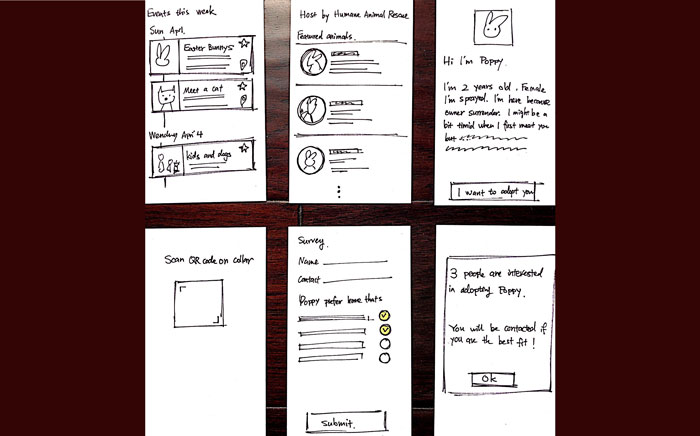 Events this week
Sun Apr1.
Easter Bunnys
Meet a cat
Wendsay Apri 4
kids and dogs
Host by Humane Animal Rescue
Featured animals.
Hi I'm Poppy.
I'm 2 years old. Female
I'm sprayed. I'm here because
owner surrender. I might be a
bit timid when I first meet you
but
I want to adopt you
Scan QR code on collar
Survey.
Name
Contact
Poppy prefer home thats
Submit.
3 people are interested
in adopting Poppy.
You will be contacted if
you are the best fit!
Ok